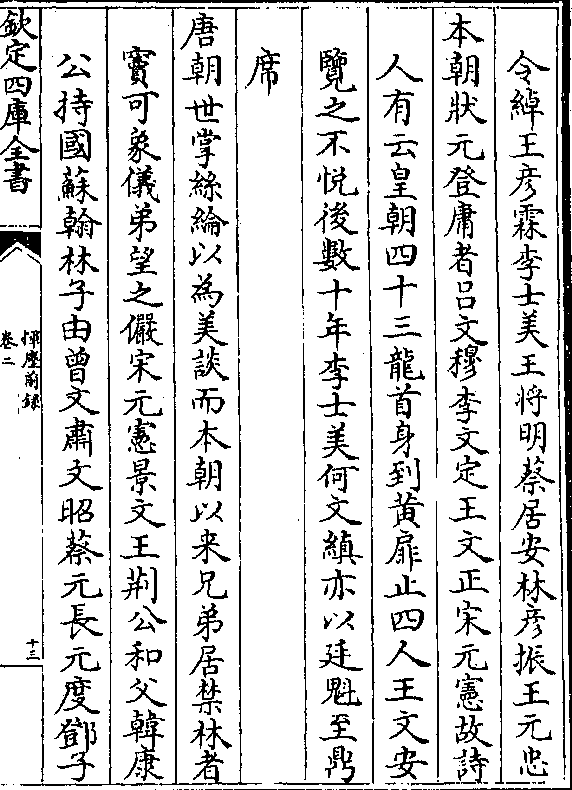 令綽王彦霖李士美王将明蔡居安林彦振王元忠
本朝狀元登庸者吕文穆李文定王文正宋元憲故詩
人有云皇朝四十三龍首身到黄扉止四人王文安
覽之不悦後數十年李士美何文縝亦以廷魁至鼎
席
唐朝世掌絲綸以為美談而本朝以来兄弟居禁林者
竇可象儀弟望之儼宋元憲景文王荆公和父韓康
公持國蘇翰林子由曾文肅文昭蔡元長元度鄧子
欽定四庫全書
揮麈前録
卷二
十三